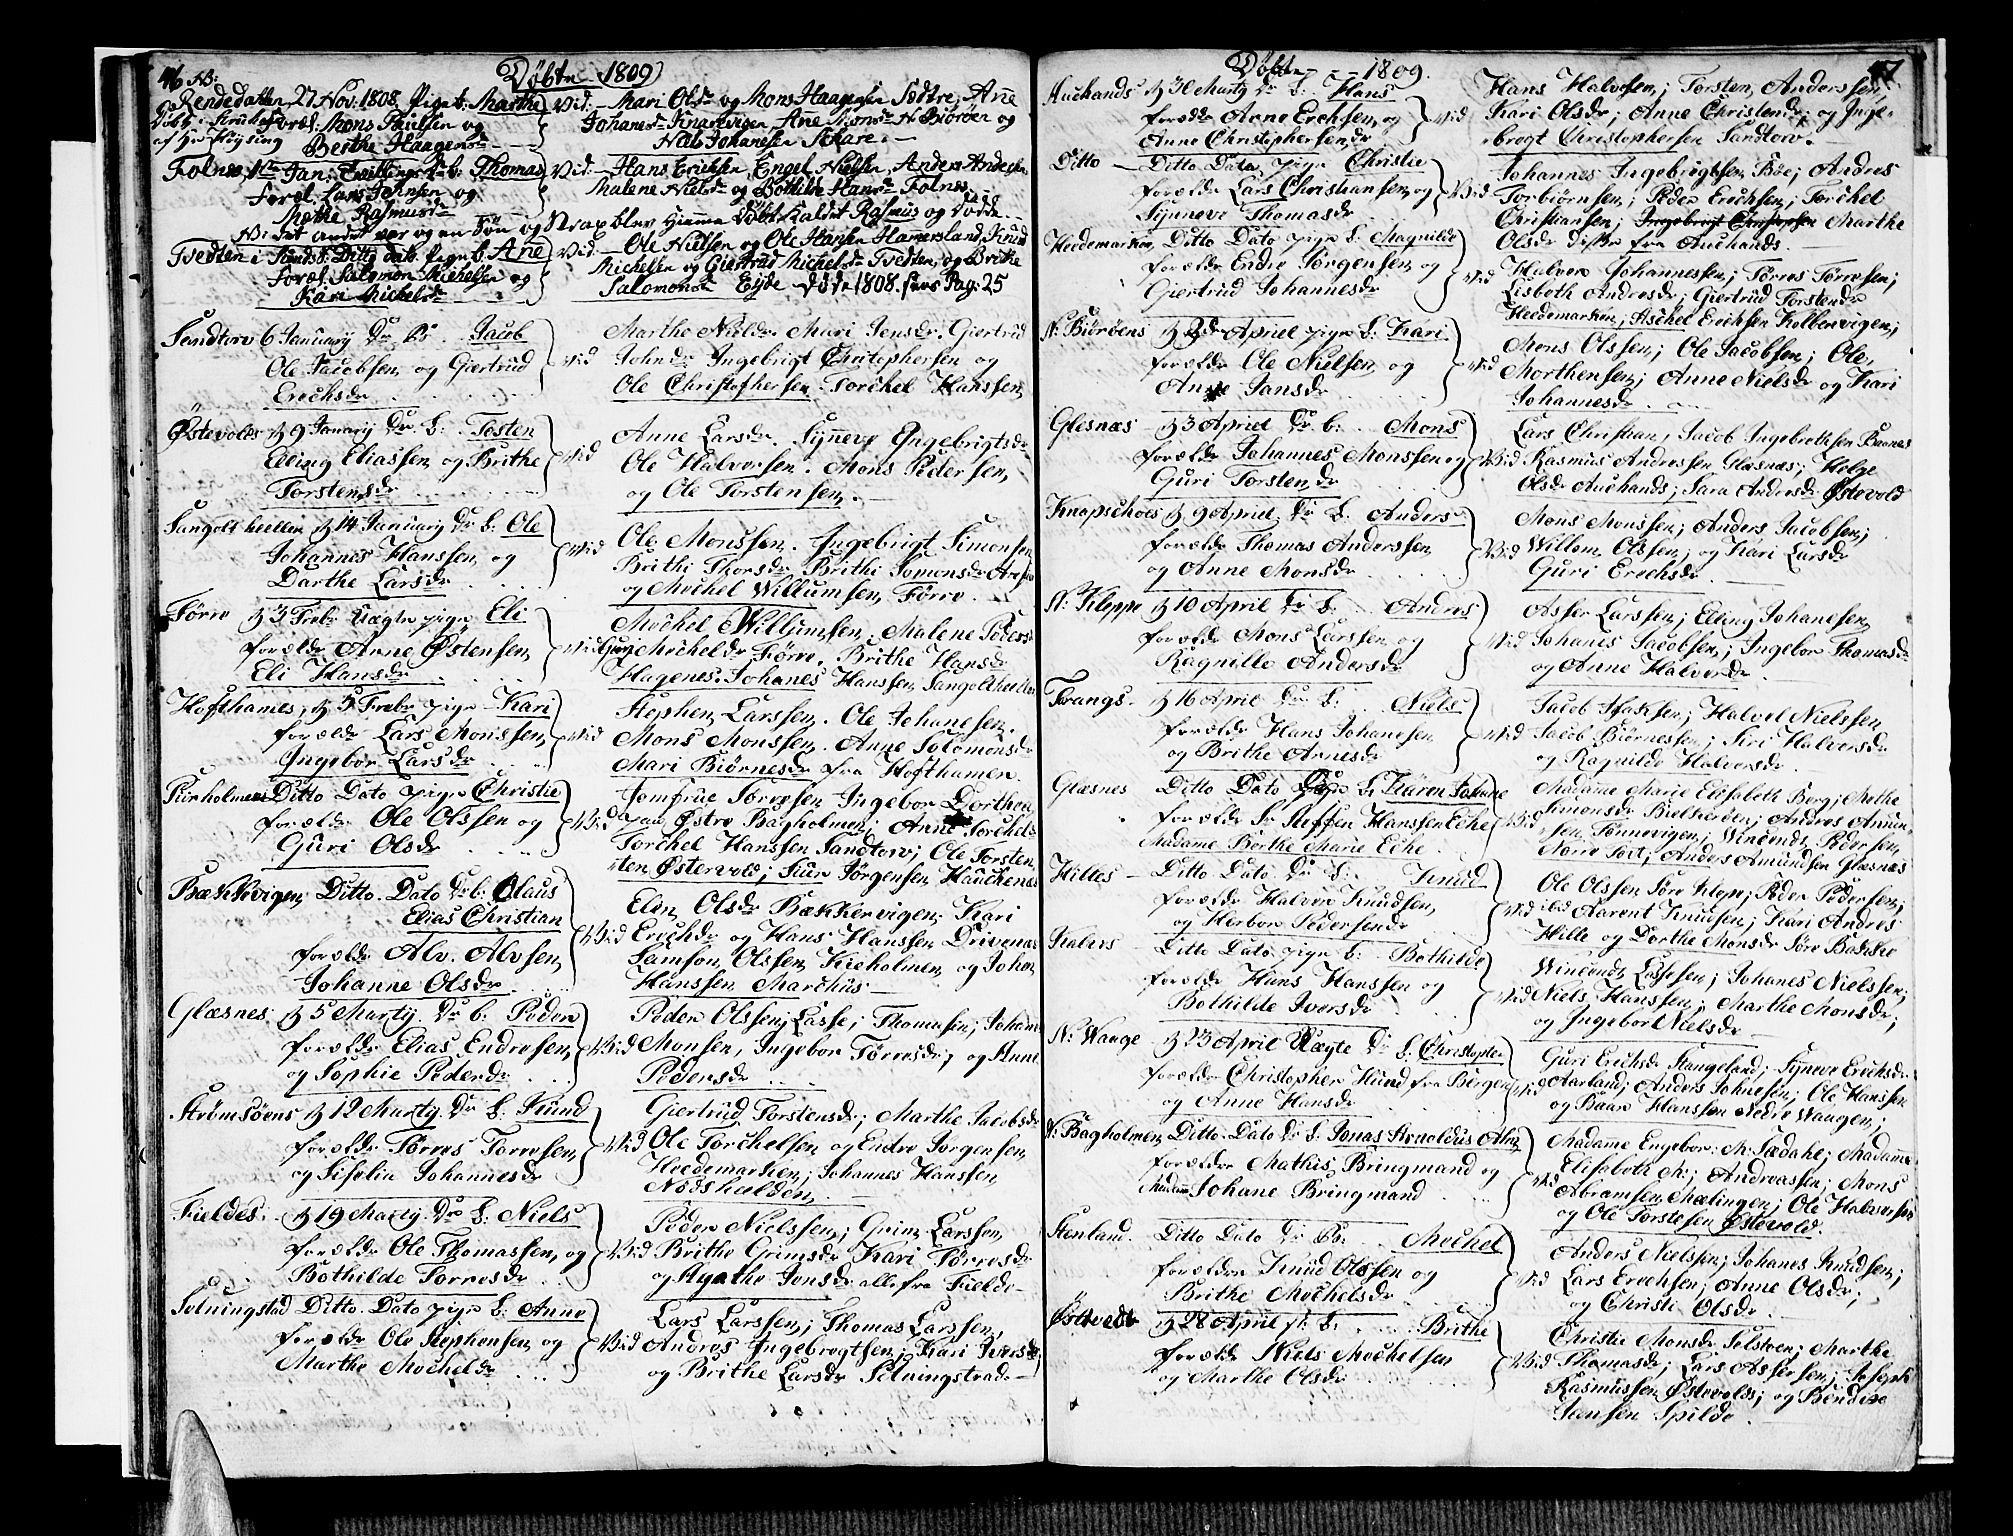 46 NB:
Døbte 1809
Rendedatten 27 Nov: 1808. Piget. Marthe Vid. Mari Olsdr og Mons Haagensen Sedtre, Ane
Døbt i Kirken
af Hr Fleysing
Foræl: Mons Paulsen og
Berthe Haagensdr
Johanesdr Knarrevigen, Ane Monsdr N: Biørøen og
Nels Johanesen Skare.
Folnes, 1ste Jan: Tvillinge Dr b. Thomas Vid Hans Ericksen, Engel Nielsen, Anders Andersen
Foræl. Lars Johnsen og
Methe Rasmusdr
Malene Nielsdr og Bottilde Hansdr Folnes.
NB: det andet var og en Søn og Strax blev hiemme døbt kaldet Rasmus og døde
Tvedten i Sunds: Ditto dato Pige b. Ane Vid Ole Nielsen og Ole Hansen Hamersland, Knud
Foræl. Salomon Michelsen og
Kari Michelsdr
Michelsen og Giertrud Michelsdr Tvedten, og Brithe
Salomonsdr Eyde døde 1808. sees Pag: 25
Sandtorv 6 January Dr B. Jacob
Ole Jacobsen og Giertrud
Erichsdr
Vid
Marthe Nielsdr Mari Jensdr. Giertrud
Johndr Ingebrigt Christophersen og
Ole Christophersen Torchel Hanssen
Østevolds d 9 January Dr b: Tosten
Elling Eliassen og Brithe
Torstensdr
Vid
Anne Larsdr. Synneve Ingebrigtsdr
Ole Halversen. Mons Pedersen,
og Ole Torstensen.
Sangolt hellen d 14 January Dr b: Ole
Johannes Hanssen og
Darthe Larsdr
Vid
Ole Monssen. Ingebrigt Simonsen
Brithe Thorsdr. Brithe Simonsdr
og Mechel Willumsen Førre.
Førre d 3 Febr Uægte pige Eli
forældr Anne Østensen
Eli Hansdr
Vid
Mechel Willumsen, Malene Peders
Guri Mecheldr Førre. Brithe Hansdr
Hagenes. Johanes Hanssen Sangolthellen
Hofthames, d 5 Febr pige Kari
forældr Lars Monssen,
Ingebor Larsdr
Vid
Stephen Larssen. Ole Johanesen.
Mons Monssen. Anne Solomonsdr
Mari Biørnesdr fra Hofthamen.
Ditto Dato pige Christie
forældr Ole Olssen og
Guri Olsdr
Vid
Jomfrue Torresen Ingebor Dorthea
Østre Bagholmen; Anne Torchels
Torchel Hanssen Sandtorv; Ole Torsten
sten Østervold; Siur Jørgensen Hauchenæs
Bækkevigen Ditto Dato Dr b: Claus
Elias Christian
forældr Alv Alvsen,
Johanne Olsdr
Vid
Elen Olsdr Bækkervigen; Kari
Erichdr og Hans Hanssen Drivenæs
Samson Olssen Kieholmen og Johan
Hanssen Marchus
Glæsnes d 5 Marty. Dr b: Peder
forældr Elias Endresen,
og Sophie Pederdr
Vid
Peder Olssen; Lasse; Thomesen; Johan
Monsen, Ingebor Tørresdr; og Anne
Pedersdr
Strømsøens d 12 Marty. Dr b: Knud
forældr Tørres Torresen,
og Siselia Johannesdr
Vid
Giertrud Torstensdr; Marthe Jacobsdr
Ole Torchelsen og Endre Jørgensen,
Heedemarken; Johannes Hanssen
Nødshelden
Fieldes. d 19 Marty. Dr b: Niels
forældr Ole Thomassen og
Bothilde Torresdr
Vid
Peder Nielssen; Grim Larssen,
Brithe Grimsdr Kari Tørresdr
og Agathe Jonsdr alle fra Fielde
Selningstad Ditto Dato pige b: Anne
forældr Ole Stephensen og
Marthe Mecheldr
Vid
Lars Larssen; Thomas Larssen,
Andres Ingebregtsen; Kari Iversdr
og Brithe Larsdr Selningstad
47
Døbte 1809.
Auchands d 30 Marty Dr b. Hans
forældr Arne Erichsen og
Anne Christophersendr
Vid
Hans Halvorsen; Torsten Anderssen,
Kari Olsdr; Anne Christendr; og Inge-
bregt Christophersen Sandtorv.
Ditto Ditto Dato pige Christie
forældr Lars Christiansen og
Synneve Thomasdr
Vid
Johannes Ingebregtsen Bøe; Andres
Torbiørnsen; Peder Erichsen; Torchel
Christiansen; Ingebregt Christophersen Marthe
Olsdr disse fra Auchands.
Heedemarken Ditto Dato pige b. Magnilde
forældr Endre Jørgensen og
Giertrud Johannesdr
Vid
Halvor Johannessen; Tørres Tørresen;
Lisbeth Andresdr; Giertrud Torstendr
Heedemarken, Aschel Erichsen Kolbensvigen;
N: Biørøens d 2 dr Apriel pige b: Kari
forældr Ole Nielsen og
Anne Jansdr
Vid
Mons Olssen; Ole Jacobsen; Ole
Morthensen; Anne Nielsdr og Kari
Johannesdr
Glesnæs d 3 Apriel Dr b: Mons
forældr Johannes Monssen og
Guri Torstendr
Vid
Lars Christian; Jacob Ingebrethsen Barnes
Rasmus Andressen Glæsnæs; Helge
Olsdr Auchands; Sara Andersdr Østevold
Knapschous d 9 Apriel Dr b. Anders
forældr Thomas Anderssen
og Anne Monsdr
Vid
Mons Monssen; Anders Jacobsen;
Willem Olssen; og Kari Larsdr
Guri Erechsdr
N: Kleppe d 10 April Dr b: Andres
forældr Mons Larssen og
Ragnille Andersdr
Vid
Asser Larssen; Eling Johanesen,
Johanes Jacobsen; Ingebor Thomasdr
og Anne Halverdr.
Trangs d 16 April Dr b: Niels
forældr Hans Johanesen
og Brithe Arnesdr
Vid
Jacob Isaksen; Halvel Nielssen
Jacob Biørnessen; Siri Halversdr
og Ragnilde Halversdr.
Glæsnes Ditto Dato Pige b. Karen Johane
forældr Sr Steffen Hanssen Eche
Madame Berthe Marie Eche
Vid
Madame Marie Elisabeth Borg; Methe
Simonsdr Bielkerøen; Andres Ammun-
sen Tønnevigen; Wincents Pedersen
Norre Tovt; Anders Amundsen Glæsnæs
Hilles Ditto Dato Dr b: Knud
forældr Halvor Knudsen,
og Herbor Pedersendr
Vid
Ole Olssen Søre Klep; Peder Pedersen;
Aarent Knudsen; Kari Andres
Hille og Dorthe Monsdr Søre Bakke
Kalves Ditto Dato pige b: Bothilde
forældr Hans Hanssen og
Bothilde Iversdr
Vid
Wincents Lassesen; Johanes Nielssen;
Niels Hanssen; Marthe Monsdr;
og Ingebor Nielsdr
N: Wange d 23 April Uægte Dr b. Christopher
forældr Christopher Kund fra Bergen
og Anne Hansdr
Vid
Guri Erichsdr Stangeland; Syneve Ericksdr
Aarland; Anders Johnesen; Ole Hanssen
og Baar Hanssen Nedre Waagen;
N: Bagholmen Ditto Dato Dr b. Jonas Arnoldus
forældr Mathis Bringmand og
Madame Johane Bringmand
Vid
Madame Engebor M: Sædahe; Madame
Elisabeth M; Andreassen; Mons
Abramsen Mælingen; Ole Halversen
og Ole Torstesen Østevold.
Stenland. Ditto Dato Dr B: Mechel
forældre Knud Olssen og
Brithe Mechelsdr
Vid
Anders Nielssen; Johanes Knudsen;
Lars Erechsen; Anne Olsdr;
og Christi Olsdr
Østevold d 28 April pi: b: Brithe
forældr Niels Mechelsen
og Marthe Olsdr
Vid
Christie Monsdr Selstøen; Marthe
Thomasdr; Lars Assersen; Joseph
Rasmussen Østevolds; og Bendixe
Jensen Spilde.